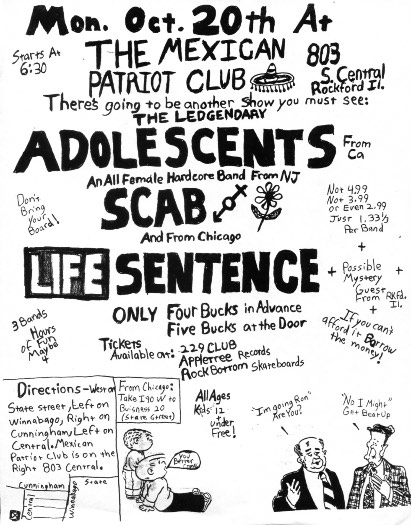 Mon. Oct. 20th At
Starts At
6:30
THE MEXICAN
PATRIOT CLUB
803
S. Central
Rockford Il.
There's going to be another show you must see:
THE LEDGENDARY
ADOLESCENTS
From
Ca
An All Female Hardcore Band From NJ
SCAB
Don't
Bring
Your
Board!
Not 4.99
Not 3.99
or Even 2.99
Just 1.33⅓
Per Band
And From Chicago
LIFE SENTENCE
+
+ Possible +
Mystery
Guest
From Rkfd.
Il.
+
ONLY Four Bucks in Advance
Five Bucks at the Door
3 Bands
Hours
of Fun
Maybe
4
If you can't
afford it Borrow
the money!
Tickets
Available at:
229 CLUB
Appletree Records
Rock Bottom Skateboards
Directions-West on
State street, Left on
Winnabago, Right on
Cunningham, Left on
Central. Mexican
Patriot Club is on the
Right 803 Central.
From Chicago:
Take I 90 W to
Buisness 20
(State Street)
All Ages
Kids 12
+
under
Free!
You Better
"I'm going Ron"
Are You?
"No I Might"
Get Beat Up
Cunningham
State
Central
Winnabago